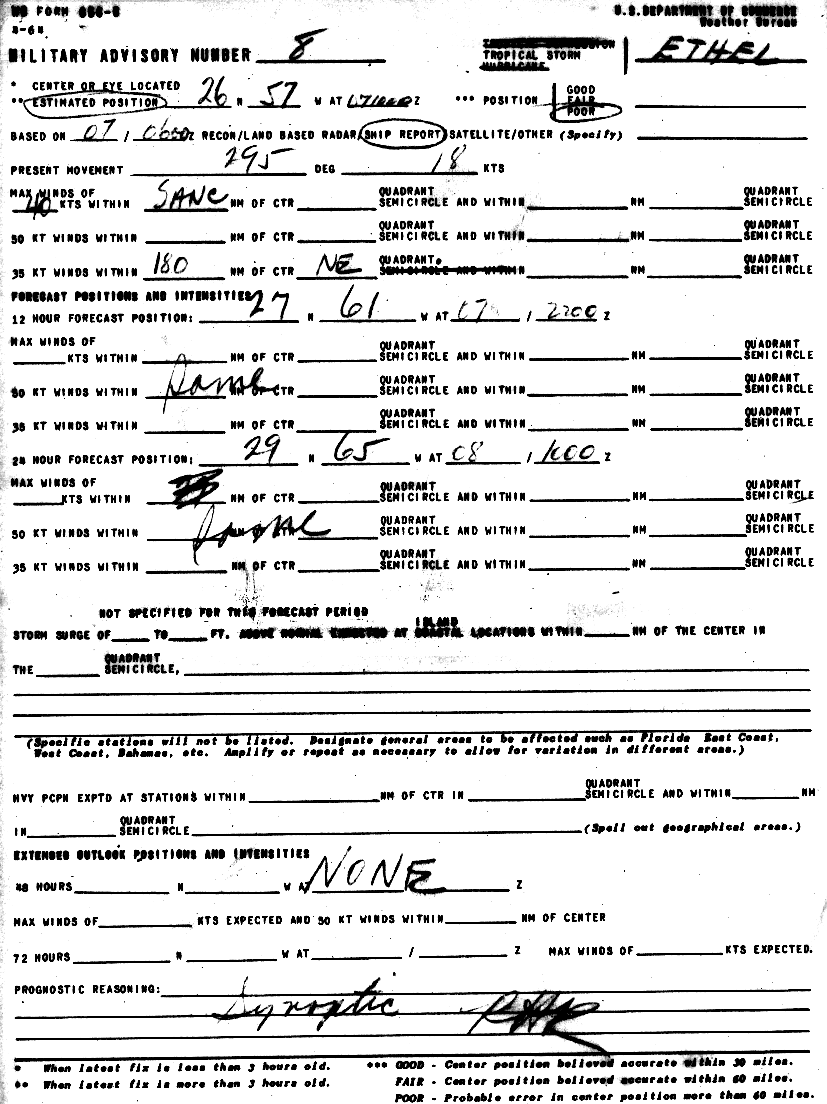 WB FORM 686-8 U.S. DEPARTMENT OF COMMERCE
Weather Bureau
MILITARY ADVISORY NUMBER 8 TROPICAL STORM ETHEL
HURRICANE
* CENTER OR EYE LOCATED GOOD
** ESTIMATED POSITION 26 N 57 W AT Z *** POSITION FAIR
POOR
BASED ON 07 / RECON/LAND BASED RADAR/SHIP REPORT/SATELLITE/OTHER (Specify)
PRESENT MOVEMENT 295 DEG 18 KTS
MAX WINDS OF QUADRANT QUADRANT
40 KTS WITHIN NM OF CTR SEMICIRCLE AND WITHIN NM SEMICIRCLE
QUADRANT QUADRANT
50 KT WINDS WITHIN NM OF CTR SEMICIRCLE AND WITHIN NM SEMICIRCLE
QUADRANT QUADRANT
35 KT WINDS WITHIN 180 NM OF CTR NE SEMICIRCLE AND WITHIN NM SEMICIRCLE
FORECAST POSITIONS AND INTENSITIES
12 HOUR FORECAST POSITION: 27 N 61 W AT 07 / 2200 Z
MAX WINDS OF QUADRANT QUADRANT
KTS WITHIN NM OF CTR SEMICIRCLE AND WITHIN NM SEMICIRCLE
QUADRANT QUADRANT
50 KT WINDS WITHIN Same NM OF CTR SEMICIRCLE AND WITHIN NM SEMICIRCLE
QUADRANT QUADRANT
35 KT WINDS WITHIN NM OF CTR SEMICIRCLE AND WITHIN NM SEMICIRCLE
24 HOUR FORECAST POSITION: 29 N 65 W AT 08 / 1000 Z
MAX WINDS OF QUADRANT QUADRANT
KTS WITHIN NM OF CTR SEMICIRCLE AND WITHIN NM SEMICIRCLE
QUADRANT QUADRANT
50 KT WINDS WITHIN SEMICIRCLE AND WITHIN NM SEMICIRCLE
QUADRANT QUADRANT
35 KT WINDS WITHIN NM OF CTR SEMICIRCLE AND WITHIN NM SEMICIRCLE
NOT SPECIFIED FOR THIS FORECAST PERIOD
ISLAND
STORM SURGE OF TO FT. ABOVE NORMAL EXPECTED AT COASTAL LOCATIONS WITHIN NM OF THE CENTER IN
QUADRANT
THE SEMICIRCLE,
(Specific stations will not be listed. Designate general areas to be affected such as Florida East Coast,
West Coast, Bahamas, etc. Amplify or repeat as necessary to allow for variation in different areas.)
QUADRANT
HVY PCPN EXPTD AT STATIONS WITHIN NM OF CTR IN SEMICIRCLE AND WITHIN NM
QUADRANT
IN SEMICIRCLE (Spell out geographical areas.)
EXTENDED OUTLOOK POSITIONS AND INTENSITIES
48 HOURS N W AT NONE Z
MAX WINDS OF KTS EXPECTED AND 50 KT WINDS WITHIN NM OF CENTER
72 HOURS N W AT / Z MAX WINDS OF KTS EXPECTED.
PROGNOSTIC REASONING:
Synoptic
* When latest fix is less than 3 hours old. *** GOOD - Center position believed accurate within 30 miles.
** When latest fix is more than 3 hours old. FAIR - Center position believed accurate within 60 miles.
POOR - Probable error in center position more than 60 miles.